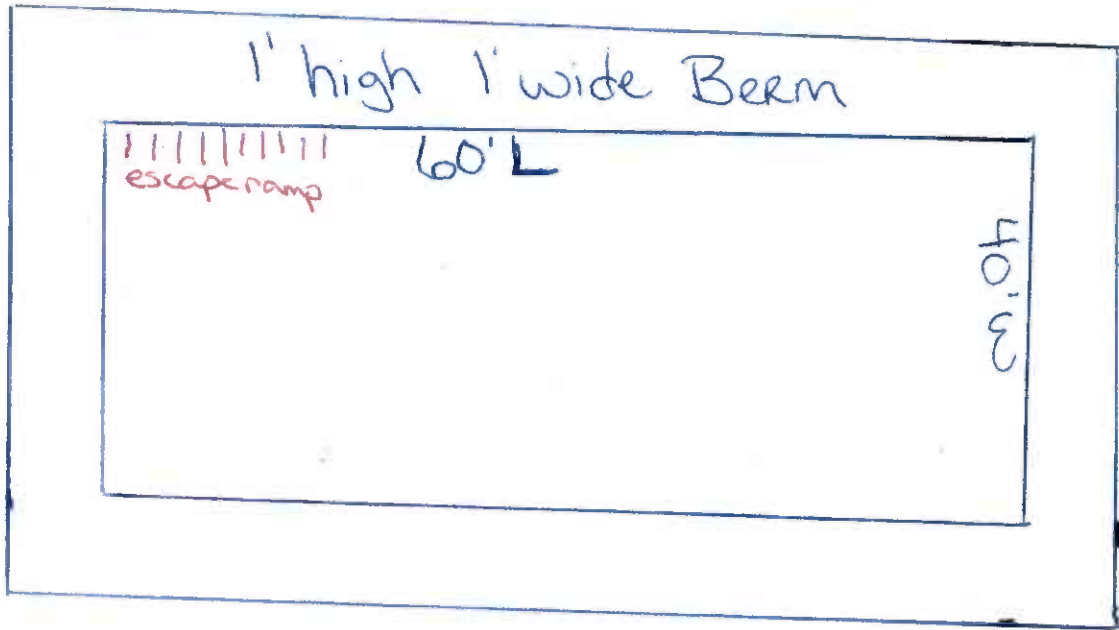 1' high 1' wide Berm
60' L
escape ramp
40' W